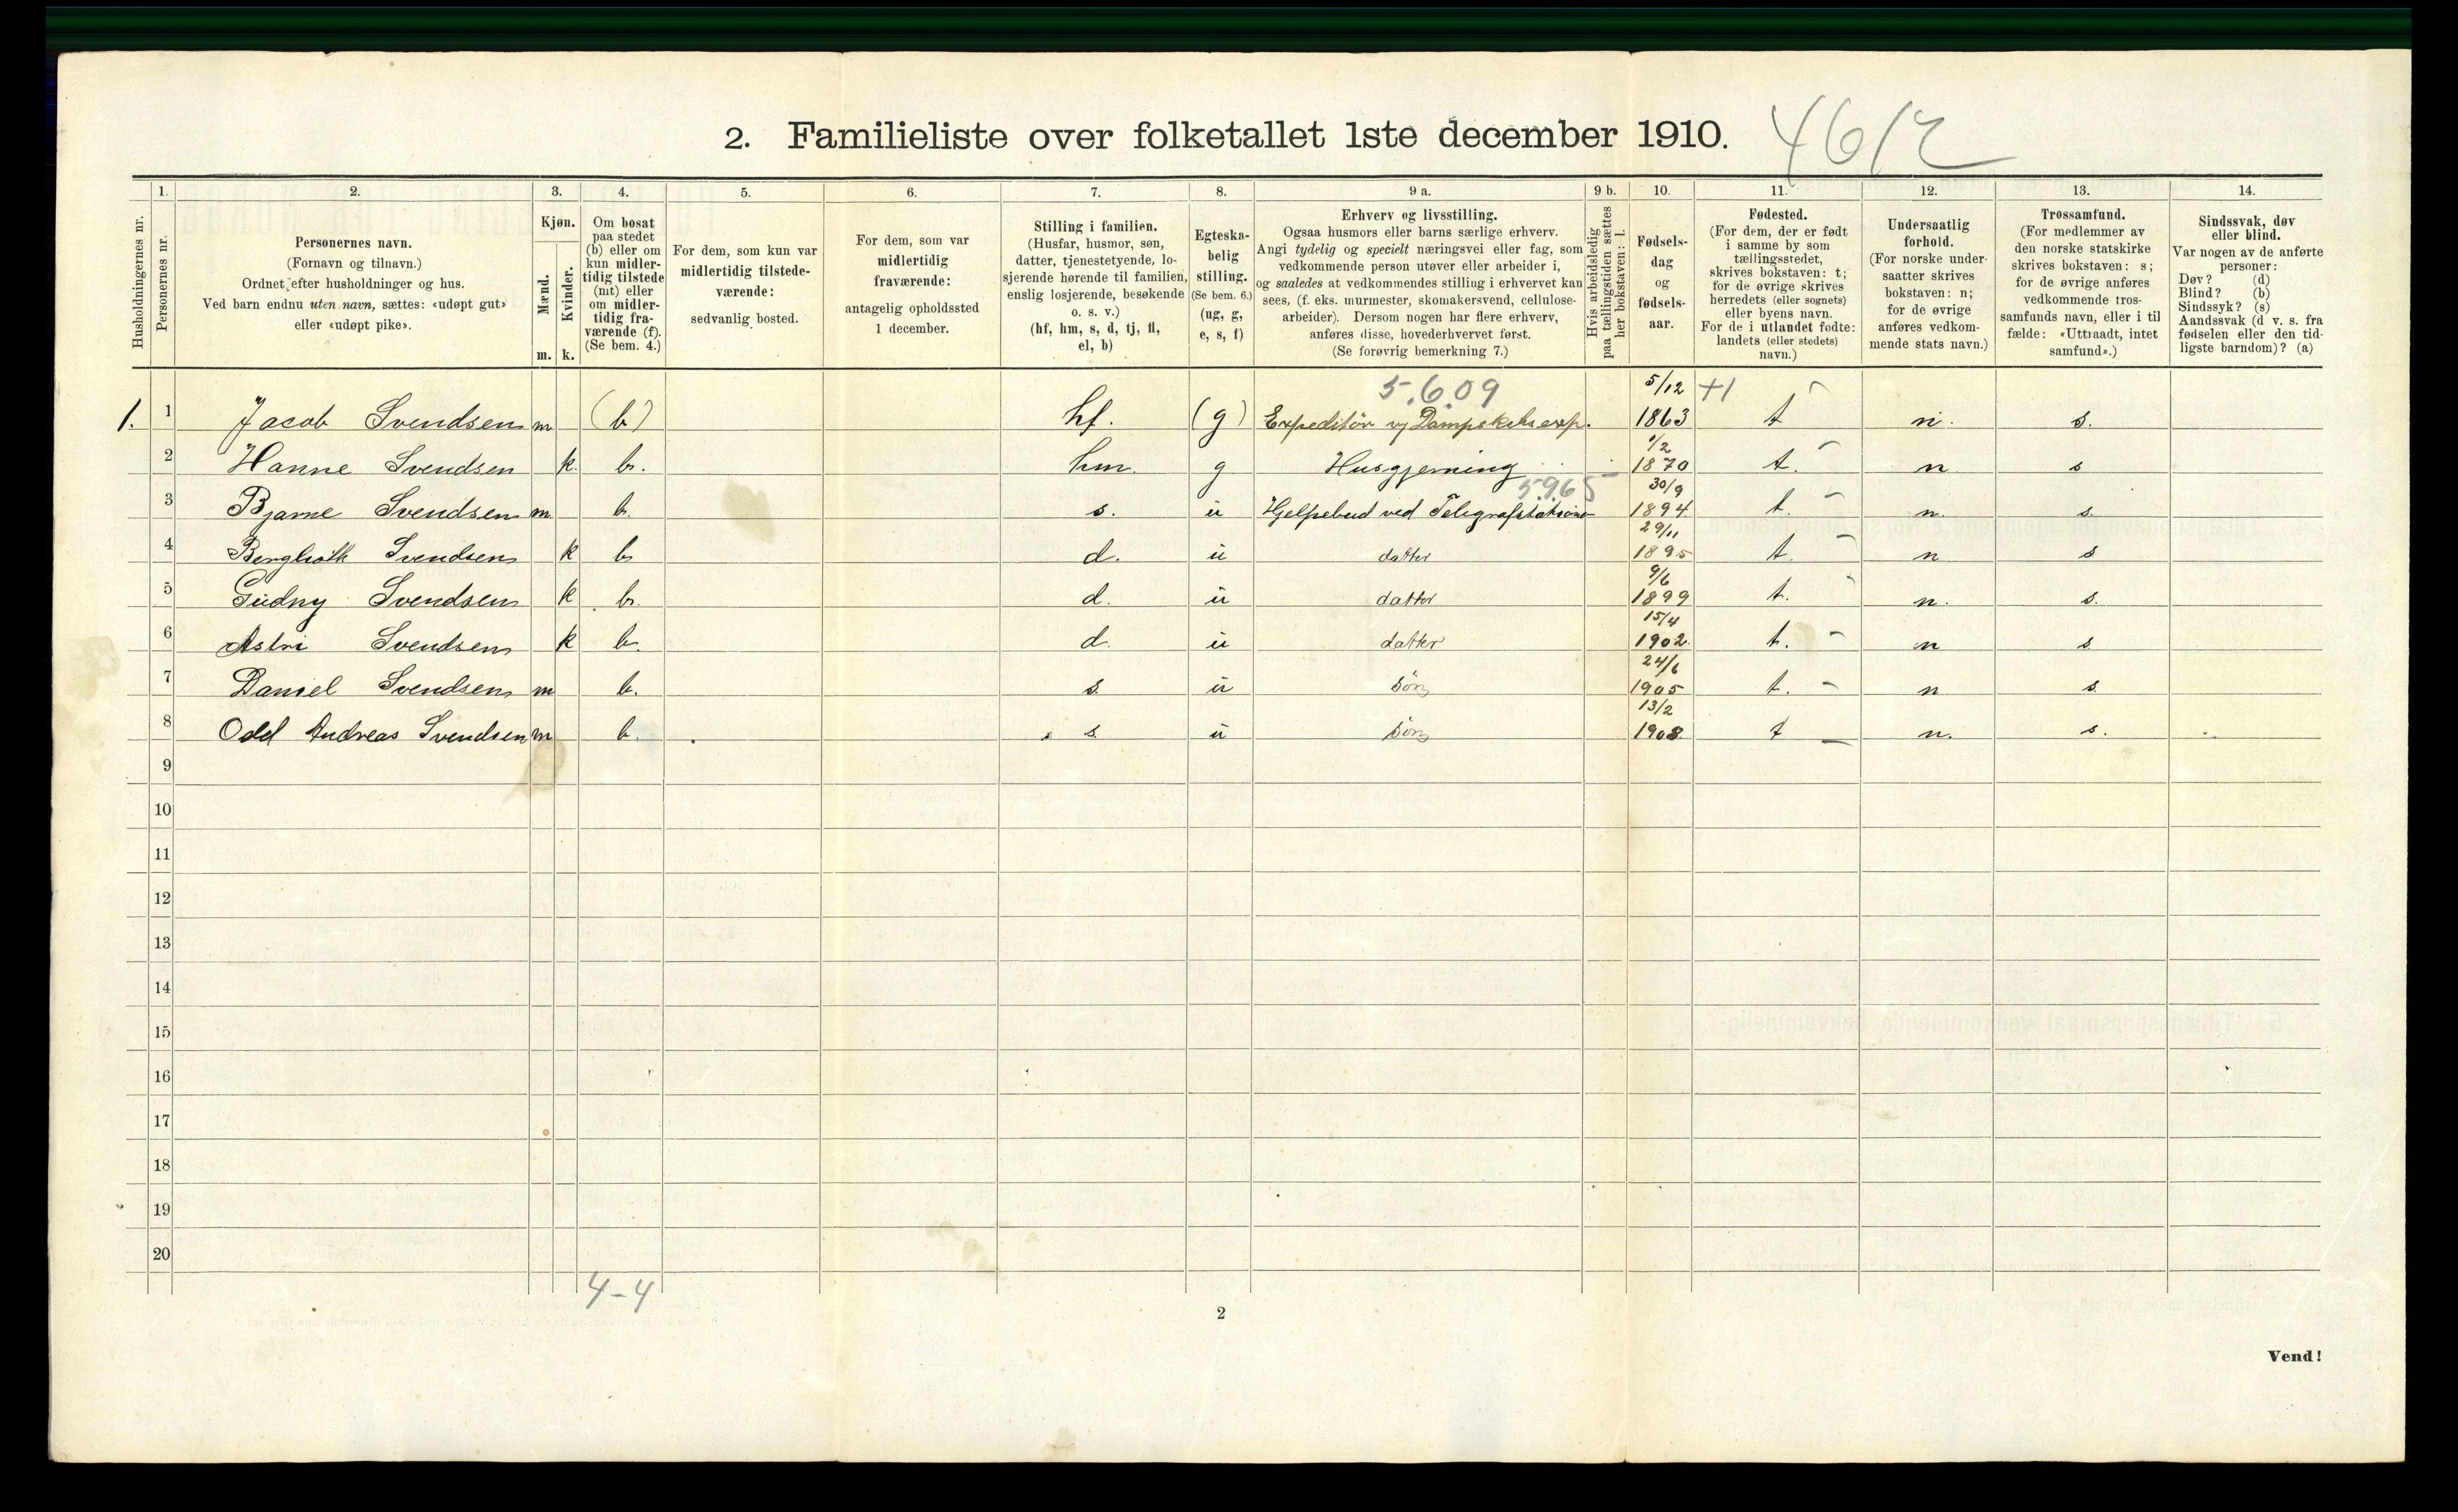 2. Familieliste over folketallet 1ste december 1910.
4612
Husholdningernes nr.
1.
Personernes nr.
2.
Personernes navn.
(Fornavn og tilnavn.)
Ordnet efter husholdninger og hus.
Ved barn endnu uten navn, sættes: «udøpt gut»
eller «udøpt pike».
3.
Kjøn.
Mænd.
Kvinder.
m. k.
4.
Om bosat
paa stedet
(b) eller om
kun midler-
tidig tilstede
(mt) eller
om midler-
tidig fra-
værende (f).
(Se bem. 4.)
5.
For dem, som kun var
midlertidig tilstede-
værende:
sedvanlig bosted.
6.
For dem, som var
midlertidig
fraværende:
antagelig opholdssted
1 december.
7.
Stilling i familien.
(Husfar, husmor, søn,
datter, tjenestetyende, lo-
sjerende hørende til familien,
enslig losjerende, besøkende
o. s. v.)
(hf, hm, s, d, tj, fl,
el, b)
8.
Egteska-
belig
stilling.
(Se bem. 6.)
(ug, g,
e, s, f)
9 a.
Erhverv og livsstilling.
Ogsaa husmors eller barns særlige erhverv.
Angi tydelig og specielt næringsvei eller fag, som
vedkommende person utøver eller arbeider i,
og saaledes at vedkommendes stilling i erhvervet kan
sees, (f. eks. murmester, skomakersvend, cellulose-
arbeider). Dersom nogen har flere erhverv,
anføres disse, hovederhvervet først.
(Se forøvrig bemerkning 7.)
9 b.
Hvis arbeidsledig
paa tællingstiden sættes
her bokstaven: l.
10.
Fødsels-
dag
og
fødsels-
aar.
11.
Fødested.
(For dem, der er født
i samme by som
tællingsstedet,
skrives bokstaven: t;
for de øvrige skrives
herredets (eller sognets)
eller byens navn.
For de i utlandet fødte:
landets (eller stedets)
navn.)
12.
Undersaatlig
forhold.
(For norske under-
saatter skrives
bokstaven: n;
for de øvrige
anføres vedkom-
mende stats navn.)
13.
Trossamfund.
(For medlemmer av
den norske statskirke
skrives bokstaven: s;
for de øvrige anføres
vedkommende tros-
samfunds navn, eller i til
fælde: «Uttraadt, intet
samfund».)
14.
Sindssvak, døv
eller blind.
Var nogen av de anførte
personer:
Døv? (d)
Blind? (b)
Sindssyk? (s)
Aandssvak (d v. s. fra
fødselen eller den tid-
ligste barndom)? (a)
5.6.09 5/12 +1
1. 1 Jacob Svendsen m (b) hf. (g) Expeditør v/ Dampskibsexp. 1863 t n. s.
1/2
2 Hanne Svendsen k. b. hm. g Husgjerning 1870 t. n s
5965 30/9
3 Bjarne Svendsen m. b. s. u Hjelpebud ved Telegrafstationen 1894 t. n. s.
29/11
4 Berglioth Svendsen k b d. u datter 1895 t. n s
9/6
5 Gudny Svendsen k b. d. u datter 1899 t. n. s.
15/4
6 Astri Svendsen k b. d. u datter 1902. t. n s.
24/6
7 Daniel Svendsen m b. s. u søn 1905 t. n s.
13/2
8 Odd Andreas Svendsen m b. s. u søn 1908. t n. s.
9
10
11
12
13
14
15
16
17
18
19
20
4-4
2
Vend!